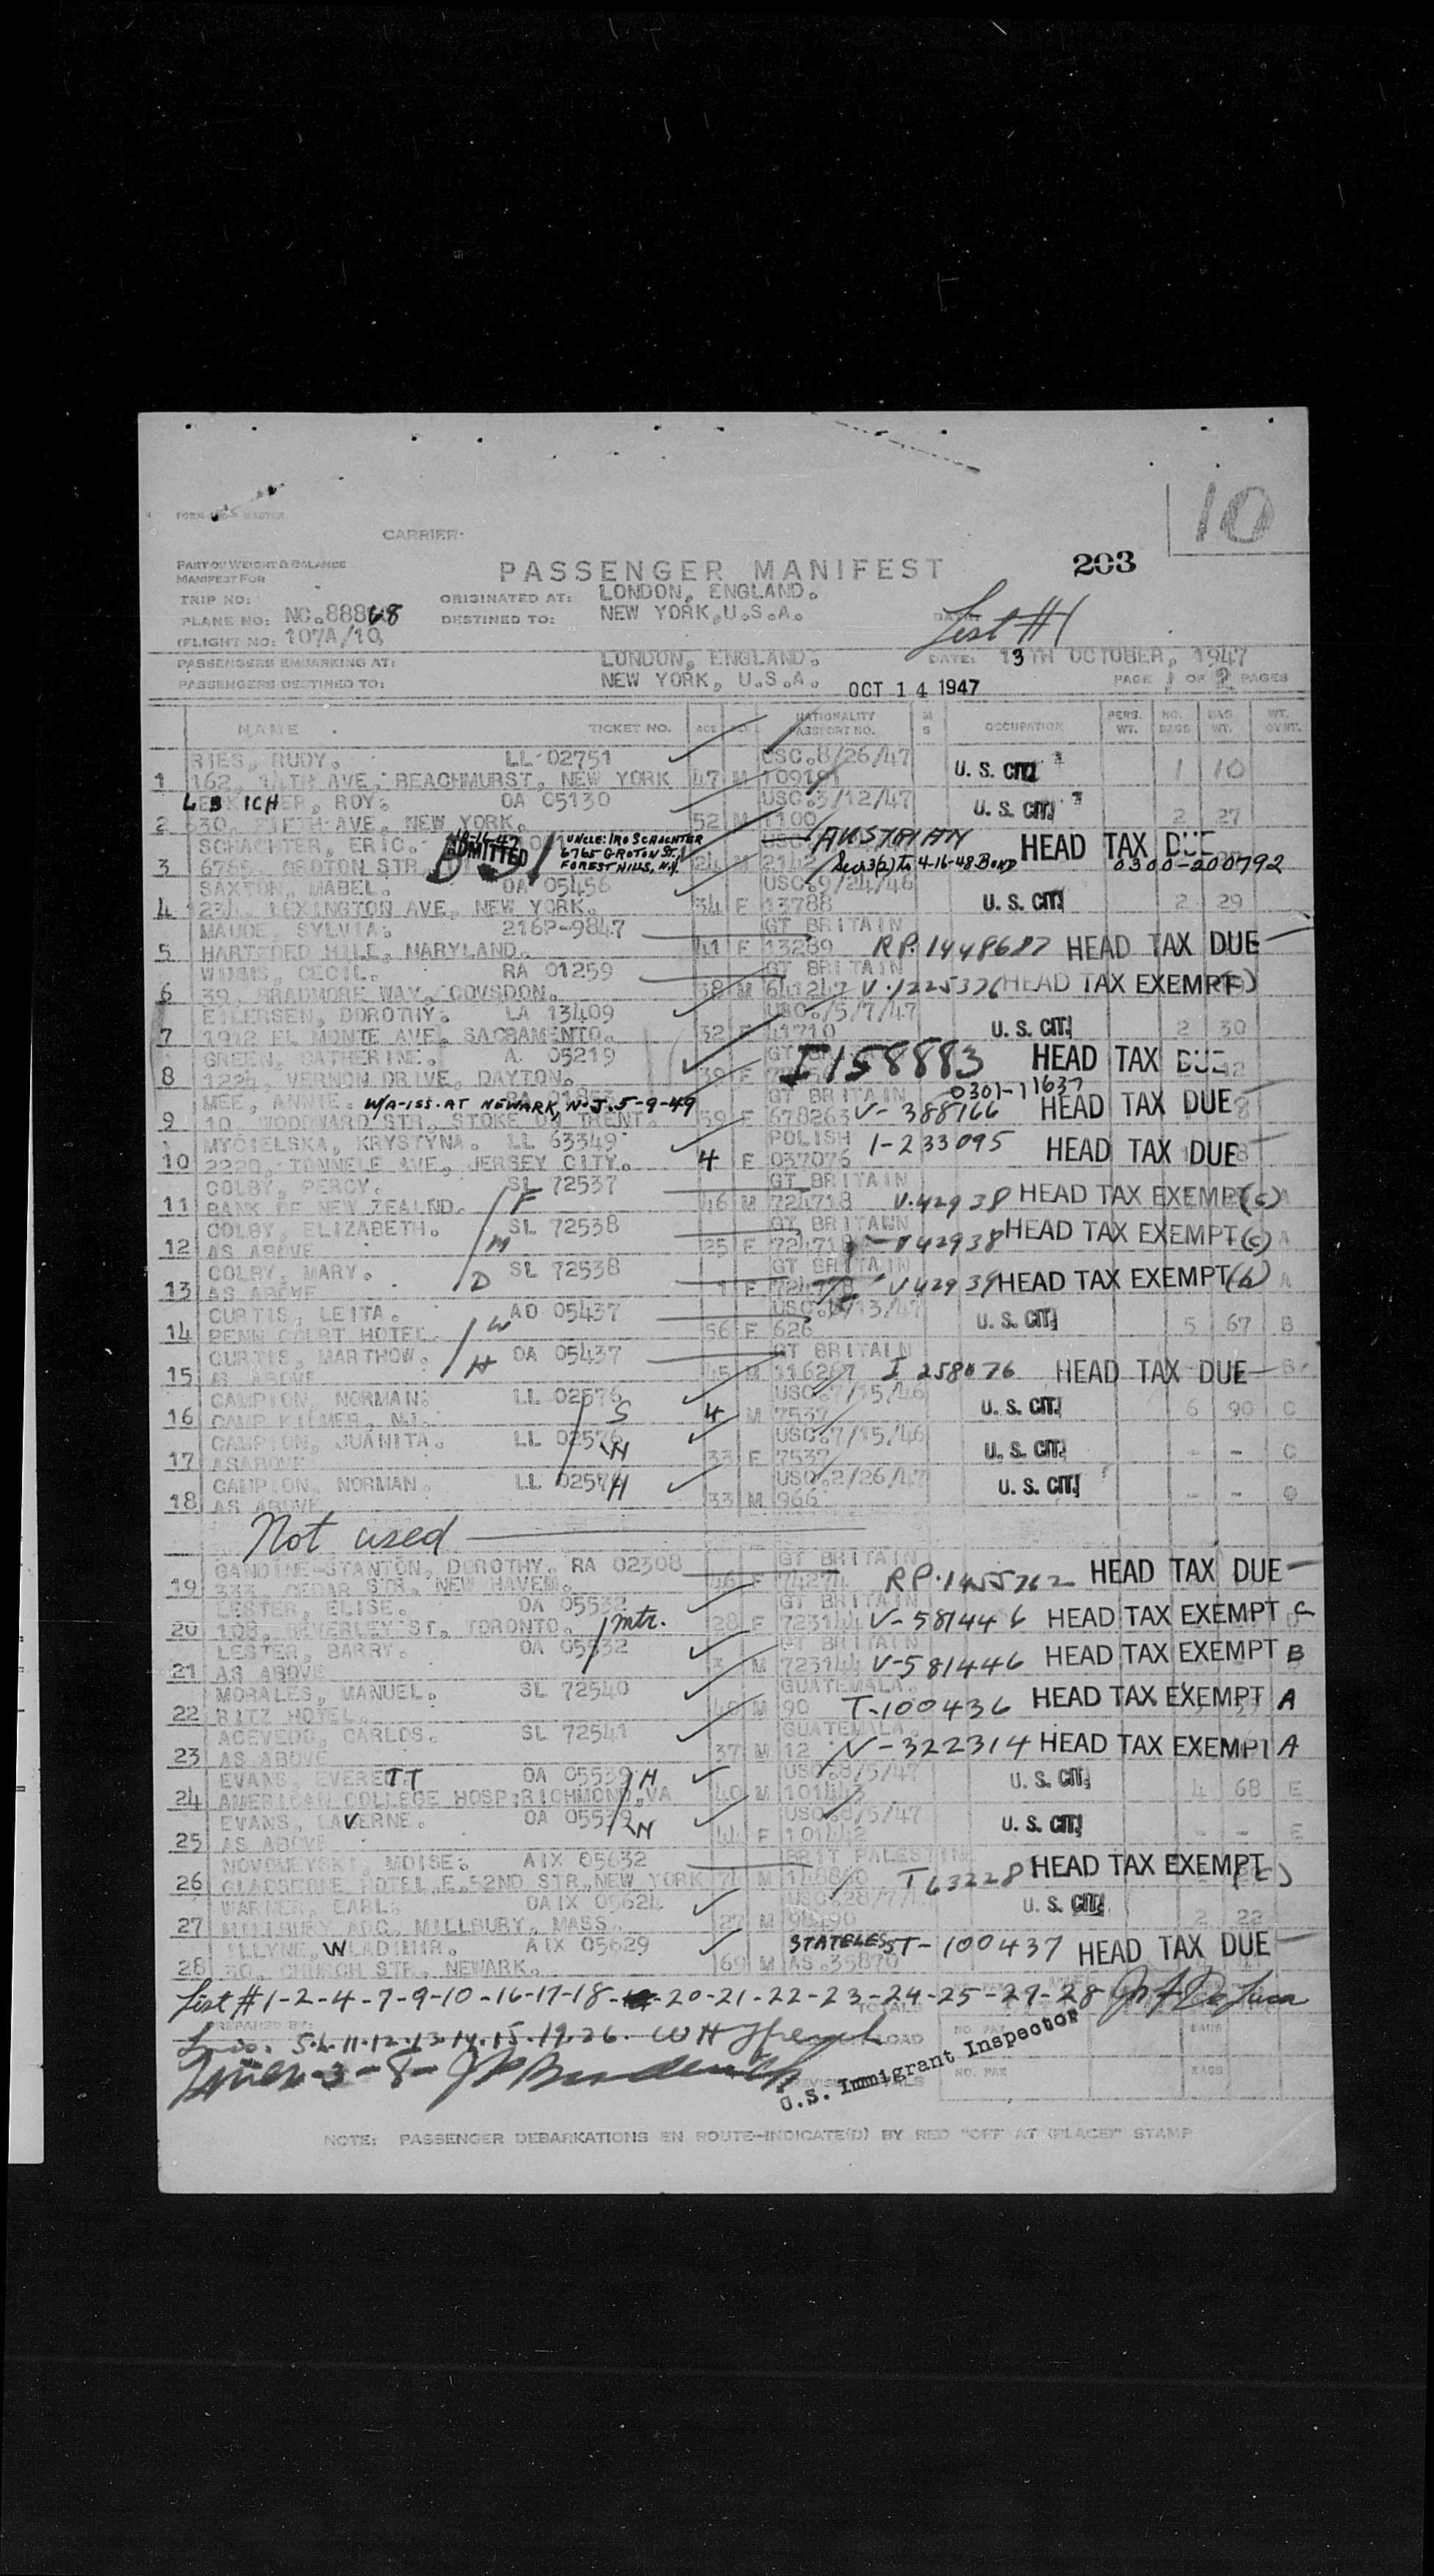 10
CARRIER:
PART OF WEIGHT & BALANCE
MANIFEST FOR
PASSENGER MANIFEST 203
TRIP NO: ORIGINATED AT: LONDON, ENGLAND.
PLANE NO: NC.88868 DESTINED TO: NEW YORK, U.S.A. List #1
(FLIGHT NO: 107A/10,
PASSENGERS EMBARKING AT: LONDON, ENGLAND. DATE: 13TH OCTOBER, 1947
PASSENGERS DESTINED TO: NEW YORK, U.S.A. OCT 14 1947 PAGE 1 OF 2 PAGES
NAME TICKET NO. AGE NATIONALITY PASSPORT NO. M S OCCUPATION PERS. WT. NO. BAGS BAG WT. WT. CONT.
RIES, RUDY. LL 02751 USC.8/26/47
1 162, 14TH AVE, BEACHHURST, NEW YORK 47 M U. S. CIT. 1 10
LEBICHER, ROY. OA 05130 USC.3/12/47
2 630, FIFTH AVE, NEW YORK. 52 M 1100 U. S. CIT. 2 27
SCHACHTER, ERIC. 10-16-47 ADMITTED UNCLE: IRO SCHACHTER AUSTRIAN HEAD TAX DUE
3 6765 GROTON STR. 6765 GROTON ST. FOREST HILLS, N.Y. 24 M 2142 Sec 3(2) to 4-16-48 BOND 0300-200792
SAXTON, MABEL. OA 05456 USC.9/24/46
4 234, LEXINGTON AVE, NEW YORK. 34 F 13788 U. S. CIT. 2 29
MAUDE, SYLVIA. 216P-9847 GT BRITAIN
5 HARTFORD HILL, MARYLAND. 41 F 13289 RP. 1448687 HEAD TAX DUE
CECIL. RA 01259 GT BRITAIN
6 39, BRADMORE WAY, COVSDON. 38 M 641247 V.1225376 HEAD TAX EXEMPT
EILERSEN, DOROTHY. LA 13409 USC./5/7/47
7 1912 EL MONTE AVE, SACRAMENTO. 32 F 41710 U. S. CIT. 2 30
GREEN, CATHERINE. A. 05219 GT
8 1224, VERNON DRIVE, DAYTON. 38 F I158883 HEAD TAX DUE
MEE, ANNIE. W/A-ISS. AT NEWARK, N.J. 5-9-49 GT BRITAIN 0301-11637
9 10, WOODWARD STR, STOKE ON TRENT. 59 F 678263 V-388766 HEAD TAX DUE
MYCIELSKA, KRYSTYNA. LL 63349 POLISH
10 2220, TONNELE AVE, JERSEY CITY. 4 F 037076 1-233095 HEAD TAX DUE
COLBY, PERCY. SL 72537 GT BRITAIN
11 BANK OF NEW ZEALND. F 46 M 724718 V.42938 HEAD TAX EXEMPT(c) A
COLBY, ELIZABETH. SL 72538 GT BRITAWN
12 AS ABOVE M 25 F 724718 V42938 HEAD TAX EXEMPT(c) A
COLBY, MARY. SL 72538 GT BRITAIN
13 AS ABOVE D 1 F V42939 HEAD TAX EXEMPT(b) A
CURTIS, LEITA. AO 05437
14 PENN COURT HOTEL. W 56 F 626 U. S. CIT. 5 67 B
CURTIS, MARTHOW. OA 05437 GT BRITAIN
15 AS ABOVE H 45 M 116267 I 258076 HEAD TAX DUE B
CAMPION, NORMAN. LL 02576 USC.7/15/46
16 CAMP KILMER, NJ. S 4 M 7537 U. S. CIT. 6 90 C
CAMPION, JUANITA. LL 02576 USC.7/15/46
17 ASABOVE 33 F 7537 U. S. CIT. - - C
CAMPION, NORMAN. LL 02576 H USC.2/26/47
18 AS ABOVE 33 M 966 U. S. CIT. - -
Not used
GANDINE-STANTON, DOROTHY. RA 02308 GT BRITAIN
19 333, CEDAR STR, NEW HAVEN. 46 F 74274 RP.1455762 HEAD TAX DUE
LESTER, ELISE. OA 05532 GT BRITAIN
20 108, BEVERLEY ST, TORONTO. mtr. 28 F 723144 V-581446 HEAD TAX EXEMPT C
LESTER, BARRY. OA 05532 GT BRITAIN
21 AS ABOVE 3 M 723144 V-581446 HEAD TAX EXEMPT B
MORALES, MANUEL. SL 72540 GUATEMALA.
22 RITZ HOTEL. 40 M 90 T-100436 HEAD TAX EXEMPT A
ACEVEDO, CARLOS. SL 72541 GUATEMALA.
23 AS ABOVE 37 M 12 V-322314 HEAD TAX EXEMPT A
EVANS, EVERETT OA 05539 H USC.8/5/47
24 AMERICAN COLLEGE HOSP, RICHMOND, VA 40 M 101443 U. S. CIT. 4 68 E
EVANS, LAVERNE. OA 05539 USC.8/5/47
25 AS ABOVE 44 F 101442 U. S. CIT. - - E
NOVOMEYSKI, MOISE. AIX 05632 BRIT PALESTINE
26 GLADSTONE HOTEL, E.52ND STR, NEW YORK 74 M 146860 T63228 HEAD TAX EXEMPT (c)
WARNER, CARL. OAIX 05624
27 MILLBURY, MASS. 27 M 98490 U. S. CIT. 2 22
ILLYNE, WLADIMIR. AIX 05629 STATELESS
28 50, CHURCH STR, NEWARK. 69 M AS.35870 T-100437 HEAD TAX DUE
List #1-2-4-7-9-10-16-17-18-20-21-22-23-24-25-27-28
PREPARED BY:
5.6.11.12.13.14.15.19.26.
Lines-3-8-
U.S. Immigrant Inspector
NOTE: PASSENGER DEBARKATIONS EN ROUTE-INDICATE(D) BY RED "OFF AT (PLACE)" STAMP